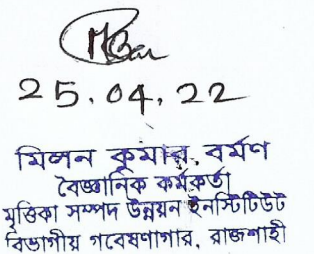 25.04.22
মিলন কুমার বর্মণ
বৈজ্ঞানিক কর্মকর্তা
মৃত্তিকা সম্পদ উন্নয়ন ইনস্টিটিউট
বিভাগীয় গবেষণাগার, রাজশাহী